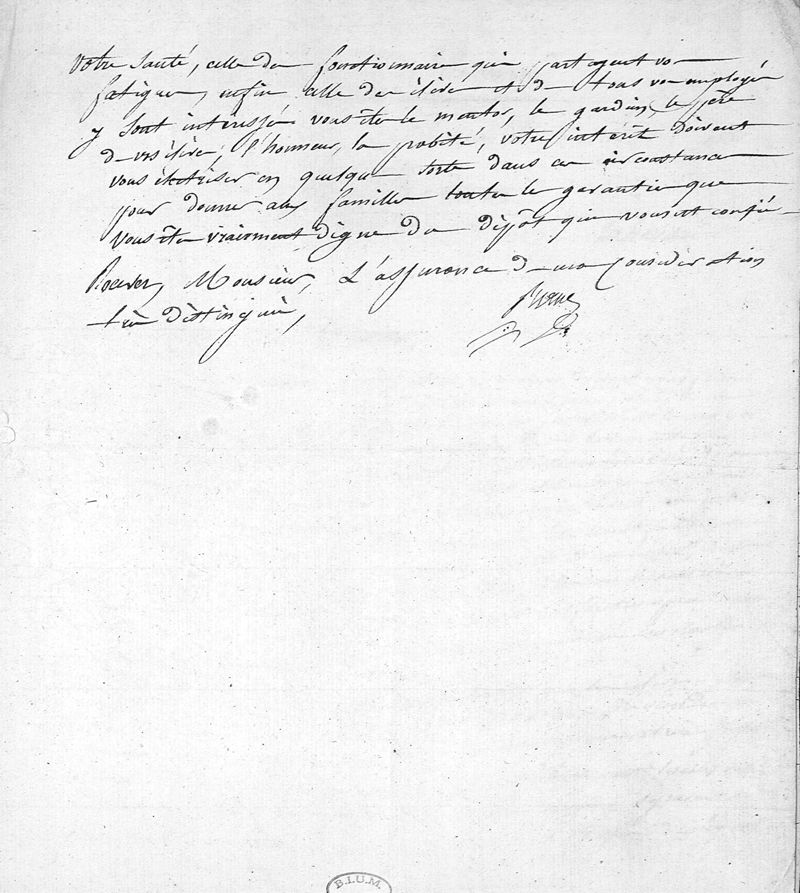 Votre Santé, celle des fonctionnaires qui partagent vos
fatigues, enfin celle des élèves et de tous vos employés
y sont intéressés. vous êtes le mentor, le gardien, le père
de vos élèves; l'honneur, la probité, votre intérêt doivent
vous électriser en quelque sorte dans ces circonstances
pour donner aux familles toutes les garanties que
vous êtes vraiment digne du dépôt qui vous est confié
Recevez, Monsieur, L'assurance de ma Consideration
très distinguée,
B.I.U.M.